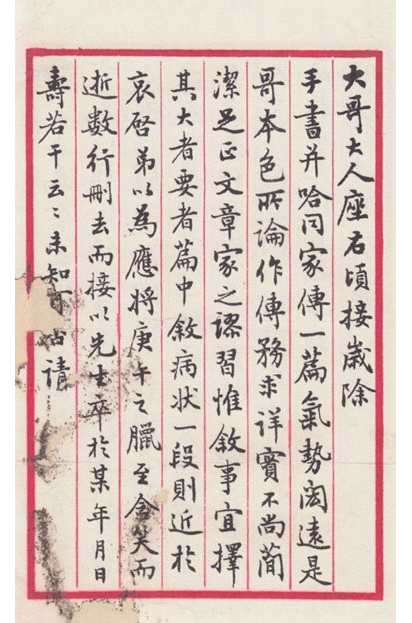 大哥大人座右頃接歲除
手書并哈同家傳一篇氣勢閎遠是
哥本色所論作傳務求詳實不尚簡
潔足正文章家之謬習惟敘事宜擇
其大者要者篇中敘病狀一段則近於
哀啓弟以為應將庚午之臘至含笑而
逝數行刪去而接以先生卒於某年月日
壽若干云〻未知可否請